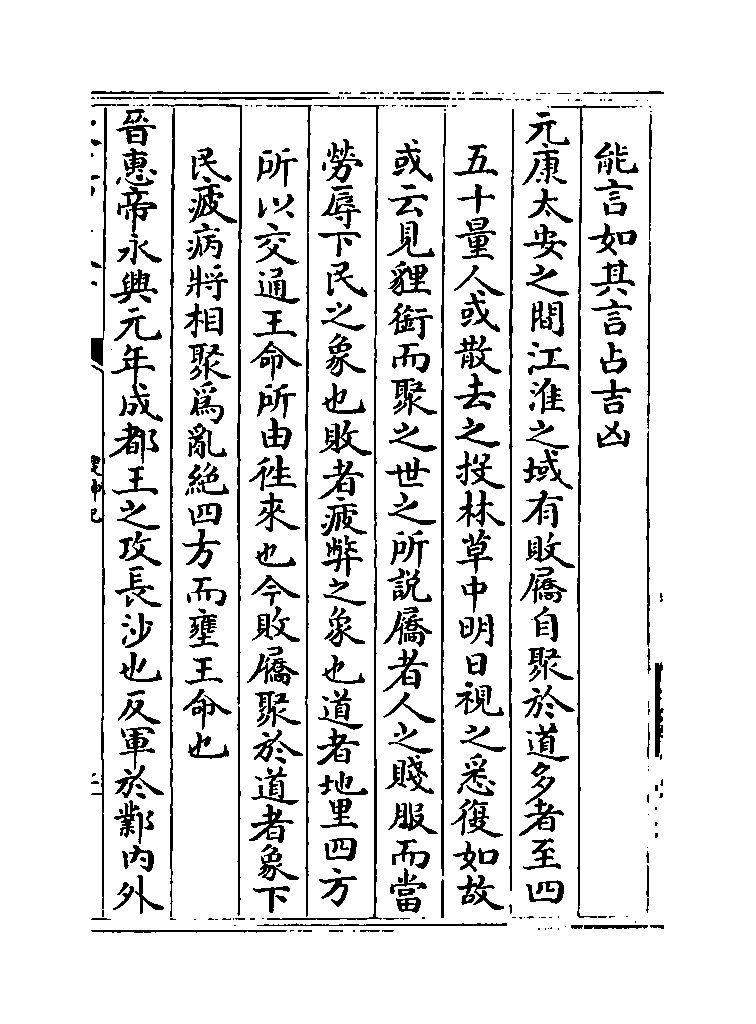 能言如其言占吉凶
元康太安之間江淮之域有敗屩自聚於道多者至四
五十量人或散去之投林草中明日視之悉復如故
或云見貍銜而聚之世之所説屩者人之賤服而當
勞辱下民之象也敗者疲弊之象也道者地里四方
所以交通王命所由徃來也今敗屩聚於道者象下
民疲病將相聚爲亂絶四方而壅王命也
晉惠帝永興元年成都王之攻長沙也反軍於鄴内外
搜神記